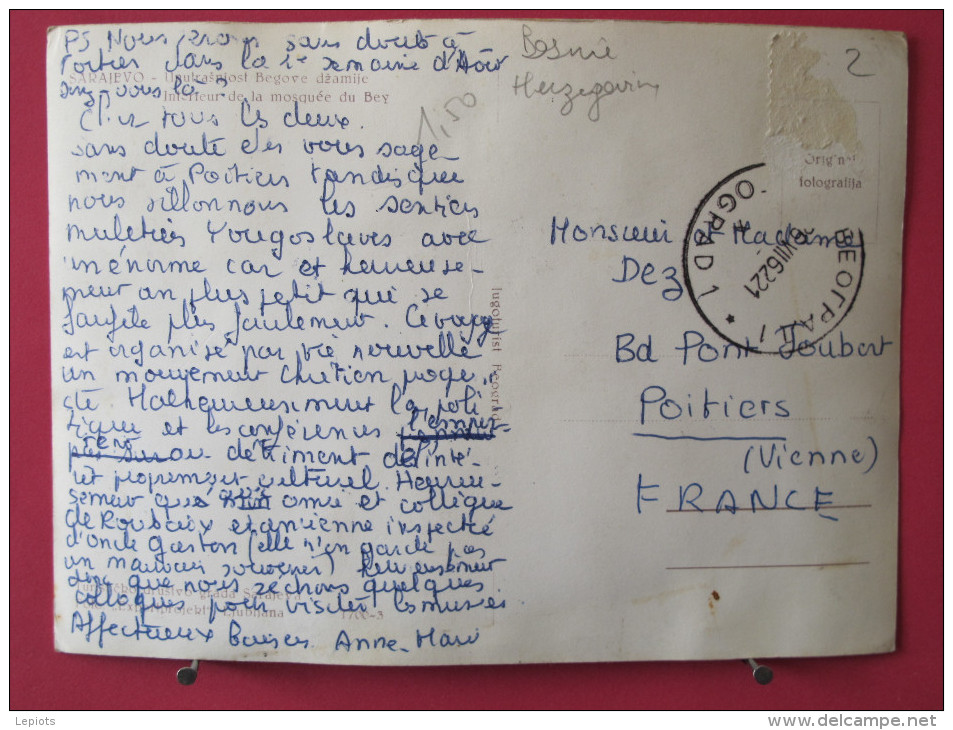 PS Nous serons sans doute à
Poitiers dans la 1e semaine d'Août
serez-vous là?
SARAJEVO - Unutrašnjost Begove džamije
Intérieur de la mosquée du Bey
Chez tous les deux.
sans doute êtes vous sage-
ment à Poitiers tandis que
nous sillonnons les sentiers
muletiers Yougoslaves avec
un énorme car et heureuse-
ment un plus petit qui se
faufile plus facilement. Ce voyage
est organisé par vie nouvelle
un mouvement chrétien progr
ste Malheureusement la poli
tique et les conférences l'empor-
tent au détriment de l'inté-
rêt proprement culturel. Heureu-
sement que amie et collègue
de Roubaix et ancienne inspectée
d'oncle Gaston (elle n'en garde pas
un mauvais souvenir) heureusement
donc que nous séchons quelques
colloques pour visiter les musées
Affectueux Baisers Anne-Marie
Turističko društvo grada Sarajeva
Ljubljana 1700-3
Jugoturist Beograd
Bosnie
Herzegovine
1,50
2
Original
fotografija
БЕОГРАД 1
BEOGRAD 1
Monsieur Madame
Dez
Bd Pont Joubert
Poitiers
(Vienne)
FRANCE
Lepiots
www.delcampe.net